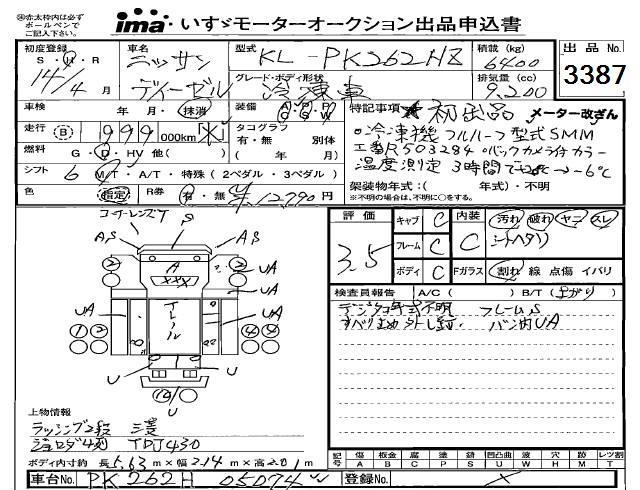 ㊟赤太枠内は必ず
ボールペンで
ご記入下さい。
ima いすゞモーターオークション出品申込書
初度登録 S・H・R 14/4 月
車名 ニッサン ディーゼル
型式 KL-PK262HZ
積載 (kg) 6400
出品No. 3387
グレード・ボディ形状 冷凍車
排気量 (cc) 9,200
車検 年・月・抹消
装備
特記事項 初出品 メーター改ざん
走行 (B) 1999 000km
タコグラフ 有・無 別体
( 年 月)
○冷凍機 フルハーフ 型式SMM
工番R503284 ○バックカメラ付カラー
燃料 G・D・HV 他( )
温度測定 3時間で
シフト 6 MT・A/T・特殊 (2ペダル・3ペダル)
架装物年式:( 年式)・不明
※不明の場合は、不明に○をする。
色 指定
R券 有・無 12,790円
評価 3.5
キャブ C
フレーム C
ボディ C
内装 C
汚れ 破れ ヤニ スレ
シートヘタリ
Fガラス 割れ 線 点傷 イバリ
検査員報告 A/C( ) B/T( 上がり )
デンタコ年式不明 フレームS
すべり止め バン内UA
コーナーレンズT
S
AS AS
A
XXX
UA
UA UA
トレール
U U
上物情報
ラッシング2段 三菱
ジョロダ4列 TDJ430
ボディ内寸約 長5.63m×幅2.14m×高2.01m
記号 傷 A 板金 B 腐 C 塗 P サビ S 凹凸曲 U 波 W 穴 H 跡 M レツ割 T
車台No. PK262H 05074
登録No.